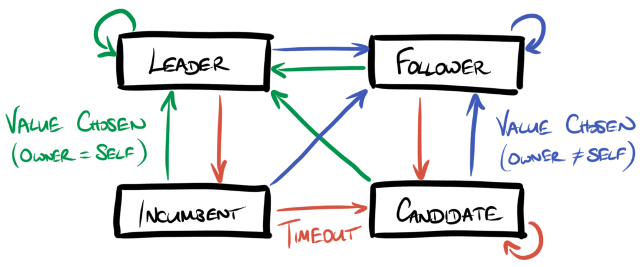 LEADER
FOLLOWER
VALUE CHOSEN
(OWNER = SELF)
VALUE CHOSEN
(OWNER ≠ SELF)
INCUMBENT
TIMEOUT
CANDIDATE